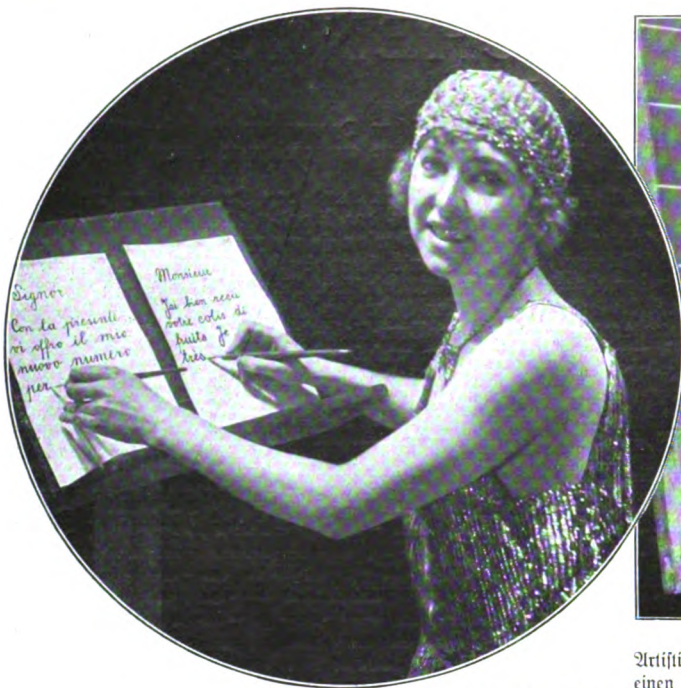 Signor
Con la presente
vi offro il mio
nuovo numero
per
Monsieur
J'ai bien recu
votre colis di
huits Je
très
Artisti
einen